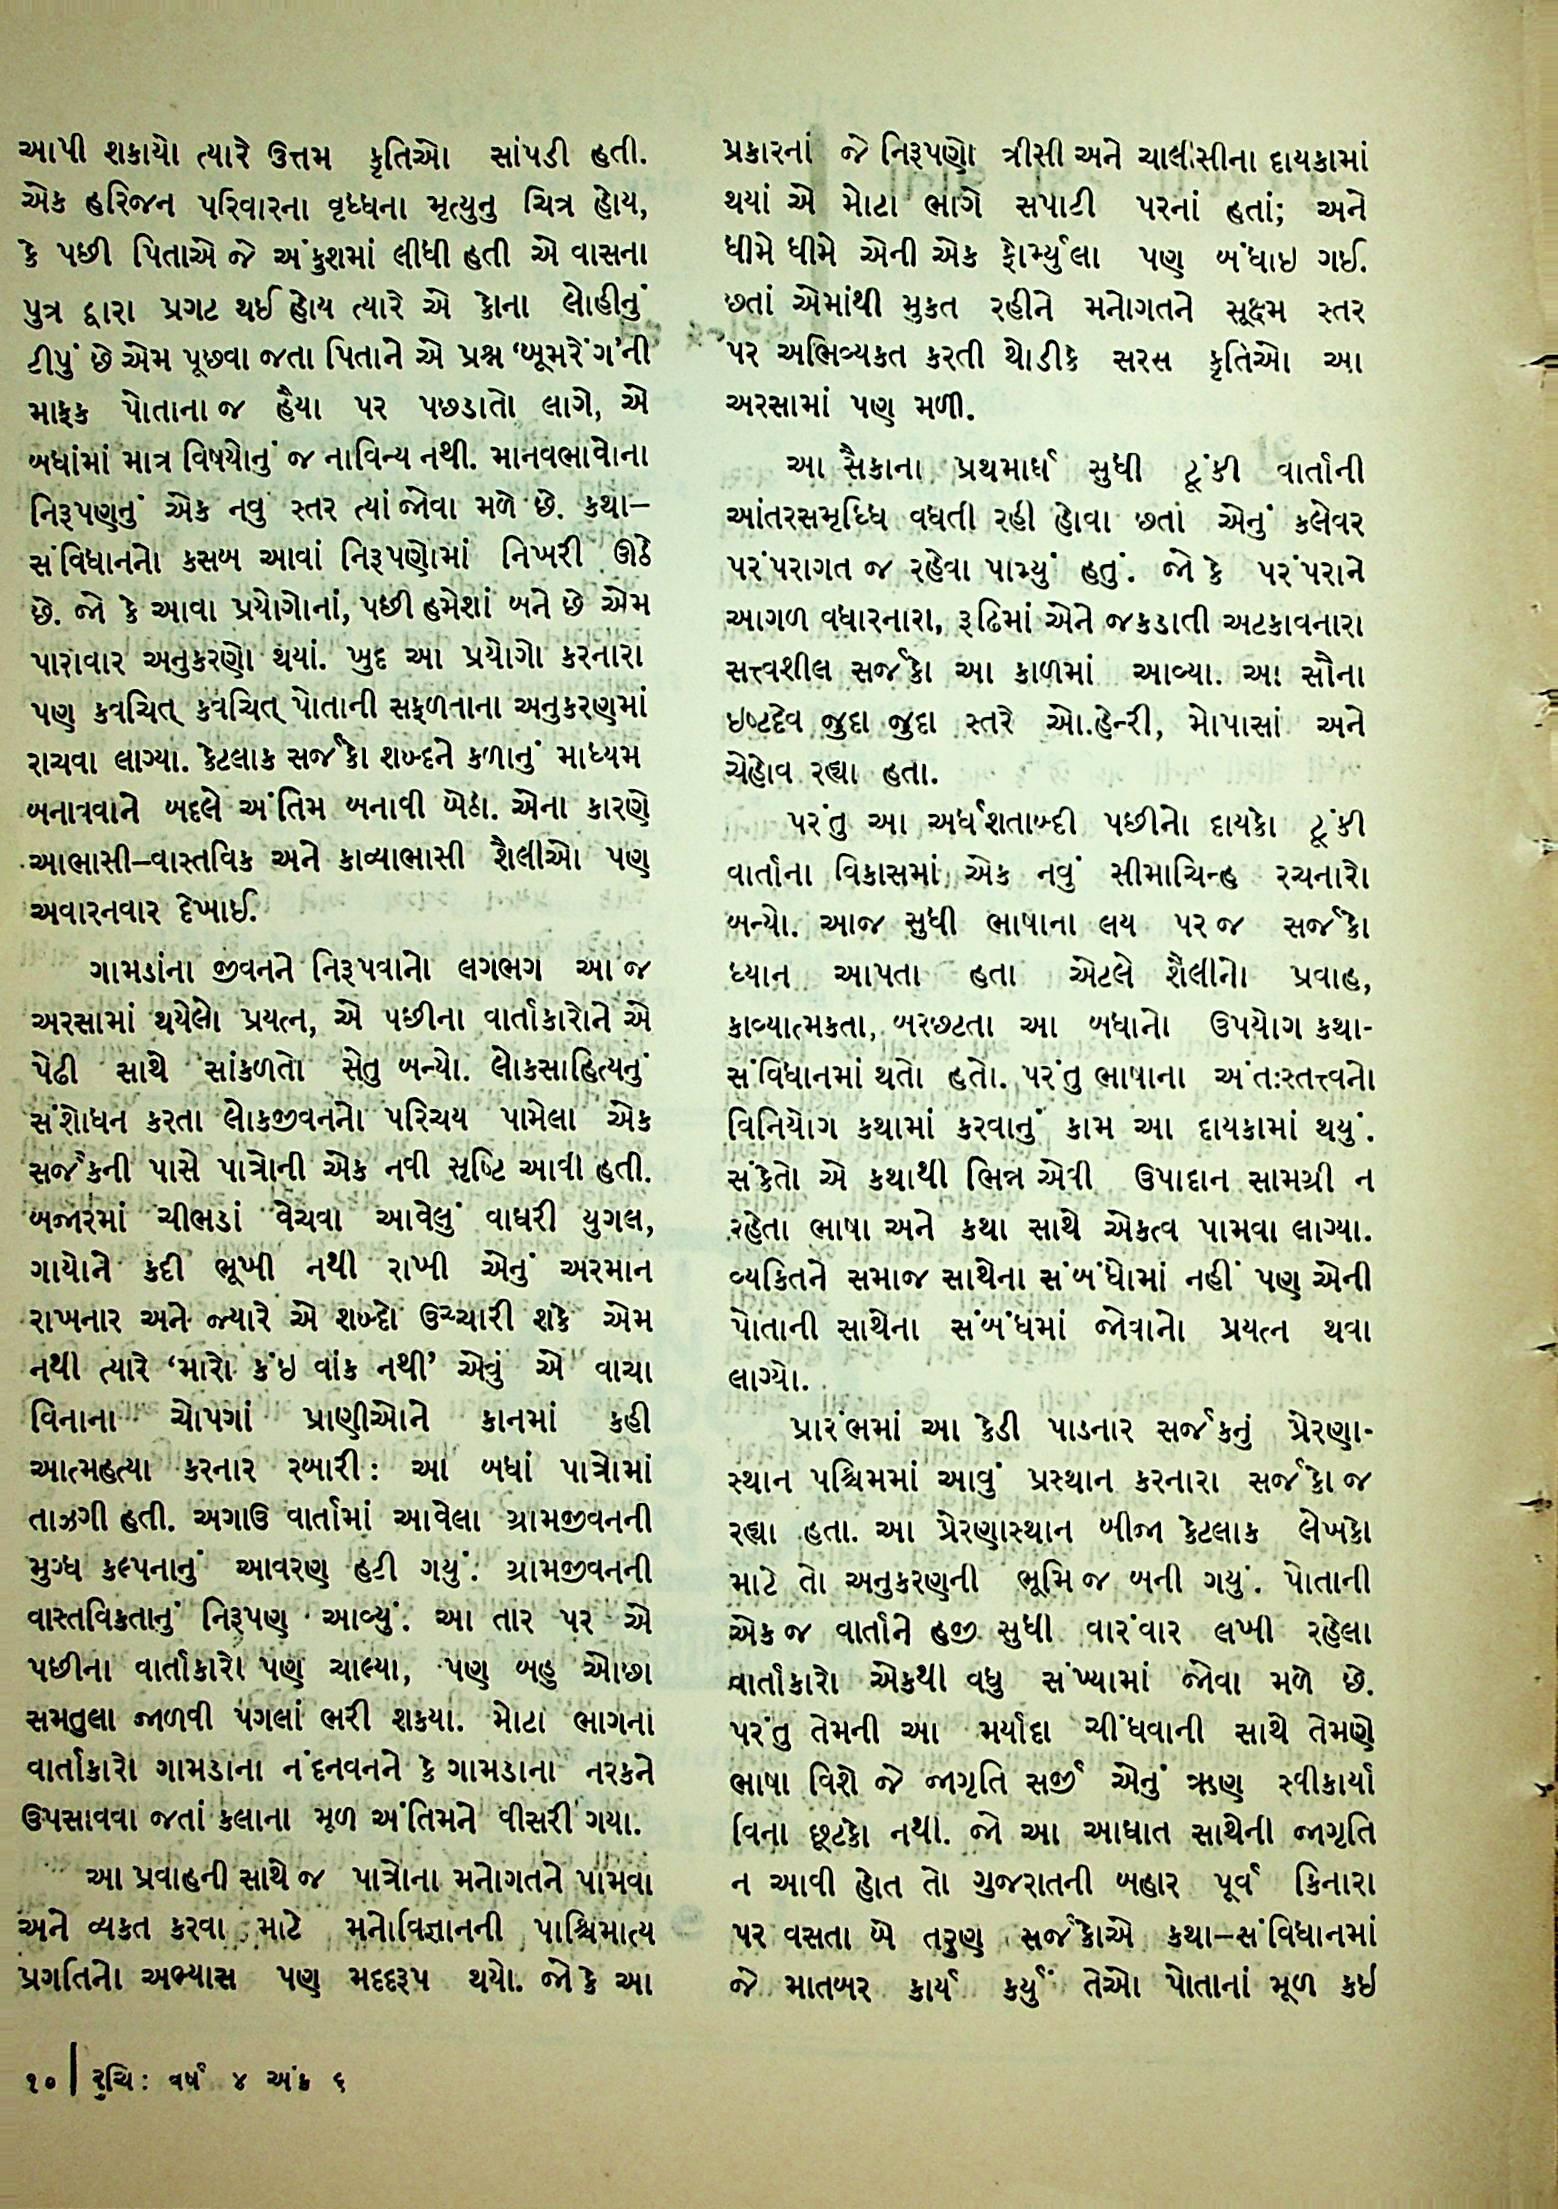 આપી શકાયો ત્યારે ઉત્તમ કૃતિઓ સાંપડી હતી.
એક હરિજન પરિવારના વૃધ્ધના મૃત્યુનુ ચિત્ર હોય,
કે પછી પિતાએ જે અંકુશમાં લીધી હતી એ વાસના
પુત્ર દ્વારા પ્રગટ થઈ હોય ત્યારે એ કોના લોહીનું
ટીપું છે એમ પૂછવા જતા પિતાને એ પ્રશ્ન ‘બૂમરેંગ’ની
માફક પોતાના જ હૈયા પર પછડાતો લાગે, એ
બધાંમાં માત્ર વિષયોનું જ નાવિન્ય નથી. માનવભાવોના
નિરૂપણનું એક નવુ સ્તર ત્યાં જોવા મળે છે. કથા–
સંવિધાનનો કસબ આવાં નિરૂપણોમાં નિખરી ઊઠે
છે. જો કે આવા પ્રયોગોનાં, પછી હમેશાં બને છે એમ
પારાવાર અનુકરણો થયાં. ખુદ આ પ્રયોગો કરનારા
પણ કવચિત્ કવચિત્ પોતાની સફળતાના અનુકરણમાં
રાચવા લાગ્યા. કેટલાક સર્જકો શબ્દને કળાનું માધ્યમ
બનાવવાને બદલે અંતિમ બનાવી બેઠા. એના કારણે
આભાસી–વાસ્તવિક અને કાવ્યાભાસી શૈલીઓ પણ
અવારનવાર દેખાઈ.
ગામડાંના જીવનને નિરૂપવાનો લગભગ આ જ
અરસામાં થયેલો પ્રયત્ન, એ પછીના વાર્તાકારોને એ
પેઢી સાથે સાંકળતો સેતુ બન્યો. લોકસાહિત્યનું
સંશોધન કરતા લોકજીવનનો પરિચય પામેલા એક
સર્જકની પાસે પાત્રોની એક નવી સૃષ્ટિ આવી હતી.
બજારમાં ચીભડાં વેચવા આવેલું વાઘરી યુગલ,
ગાયોને કદી ભૂખી નથી રાખી એનું અરમાન
રાખનાર અને જ્યારે એ શબ્દો ઉચ્ચારી શકે એમ
નથી ત્યારે ‘મારો કંઇ વાંક નથી’ એવું એ વાચા
વિનાના ચોપગાં પ્રાણીઓને કાનમાં કહી
આત્મહત્યા કરનાર રબારી : આ બધાં પાત્રોમાં
તાઝગી હતી. અગાઉ વાર્તામાં આવેલા ગ્રામજીવનની
મુગ્ધ કલ્પનાનું આવરણ હટી ગયું. ગ્રામજીવનની
વાસ્તવિકતાનું નિરૂપણ આવ્યું. આ તાર પર એ
પછીના વાર્તાકારો પણ ચાલ્યા, પણ બહુ ઓછા
સમતુલા જાળવી પગલાં ભરી શકયા. મોટા ભાગના
વાર્તાકારો ગામડાના નંદનવનને કે ગામડાના નરકને
ઉપસાવવા જતાં કલાના મૂળ અંતિમને વીસરી ગયા.
આ પ્રવાહની સાથે જ પાત્રોના મનોગતને પામવા
અને વ્યકત કરવા માટે મનોવિજ્ઞાનની પાશ્ચિમાત્ય
પ્રગતિનો અભ્યાસ પણ મદદરૂપ થયો. જો કે આ
પ્રકારનાં જે નિરૂપણો ત્રીસી અને ચાલીસીના દાયકામાં
થયાં એ મોટા ભાગે સપાટી પરનાં હતાં; અને
ધીમે ધીમે એની એક ફોર્મ્યુલા પણ બંધાઇ ગઈ.
છતાં એમાંથી મુકત રહીને મનોગતને સૂક્ષ્મ સ્તર
પર અભિવ્યકત કરતી થોડીકે સરસ કૃતિઓ આ
અરસામાં પણ મળી.
આ સૈકાના પ્રથમાર્ધ સુધી ટૂંકી વાર્તાની
આંતરસમૃધ્ધિ વધતી રહી હોવા છતાં એનું કલેવર
પરંપરાગત જ રહેવા પામ્યું હતું. જો કે પરંપરાને
આગળ વધારનારા, રૂઢિમાં એને જકડાતી અટકાવનારા
સત્ત્વશીલ સર્જકો આ કાળમાં આવ્યા. આ સૌના
ઇષ્ટદેવ જુદા જુદા સ્તરે ઓ.હેન્રી, મોપાસાં અને
ચેહોવ રહ્યા હતા.
પરંતુ આ અર્ધશતાબ્દી પછીનો દાયકો ટૂંકી
વાર્તાના વિકાસમાં એક નવું સીમાચિન્હ રચનારો
બન્યો. આજ સુધી ભાષાના લય પર જ સર્જકો
ધ્યાન આપતા હતા એટલે શૈલીનો પ્રવાહ,
કાવ્યાત્મકતા, બરછટતા આ બધાનો ઉપયોગ કથા-
સંવિધાનમાં થતો હતો. પરંતુ ભાષાના અંતઃસ્તત્ત્વનો
વિનિયોગ કથામાં કરવાનું કામ આ દાયકામાં થયું.
સંકેતો એ કથાથી ભિન્ન એવી ઉપાદાન સામગ્રી ન
રહેતા ભાષા અને કથા સાથે એકત્વ પામવા લાગ્યા.
વ્યકિતને સમાજ સાથેના સંબંધોમાં નહીં પણ એની
પોતાની સાથેના સંબંધમાં જોવાનો પ્રયત્ન થવા
લાગ્યો.
પ્રારંભમાં આ કેડી પાડનાર સર્જકનું પ્રેરણા-
સ્થાન પશ્ચિમમાં આવું પ્રસ્થાન કરનારા સર્જકો જ
રહ્યા હતા. આ પ્રેરણાસ્થાન બીજા કેટલાક લેખકો
માટે તો અનુકરણની ભૂમિ જ બની ગયું. પોતાની
એક જ વાર્તાને હજી સુધી વારંવાર લખી રહેલા
વાર્તાકારો એકથી વધુ સંખ્યામાં જોવા મળે છે.
પરંતુ તેમની આ મર્યાદા ચીંધવાની સાથે તેમણે
ભાષા વિશે જે જાગૃતિ સર્જી એનું ઋણ સ્વીકાર્યા
વિના છૂટકો નથી. જો આ આઘાત સાથેની જાગૃતિ
ન આવી હોત તો ગુજરાતની બહાર પૂર્વ કિનારા
પર વસતા બે તરુણ સર્જકોએ કથા–સંવિધાનમાં
જે માતબર કાર્ય કર્યું તેઓ પોતાનાં મૂળ કઇ
૧૦ | રુચિ : વર્ષ ૪ અંક ૬